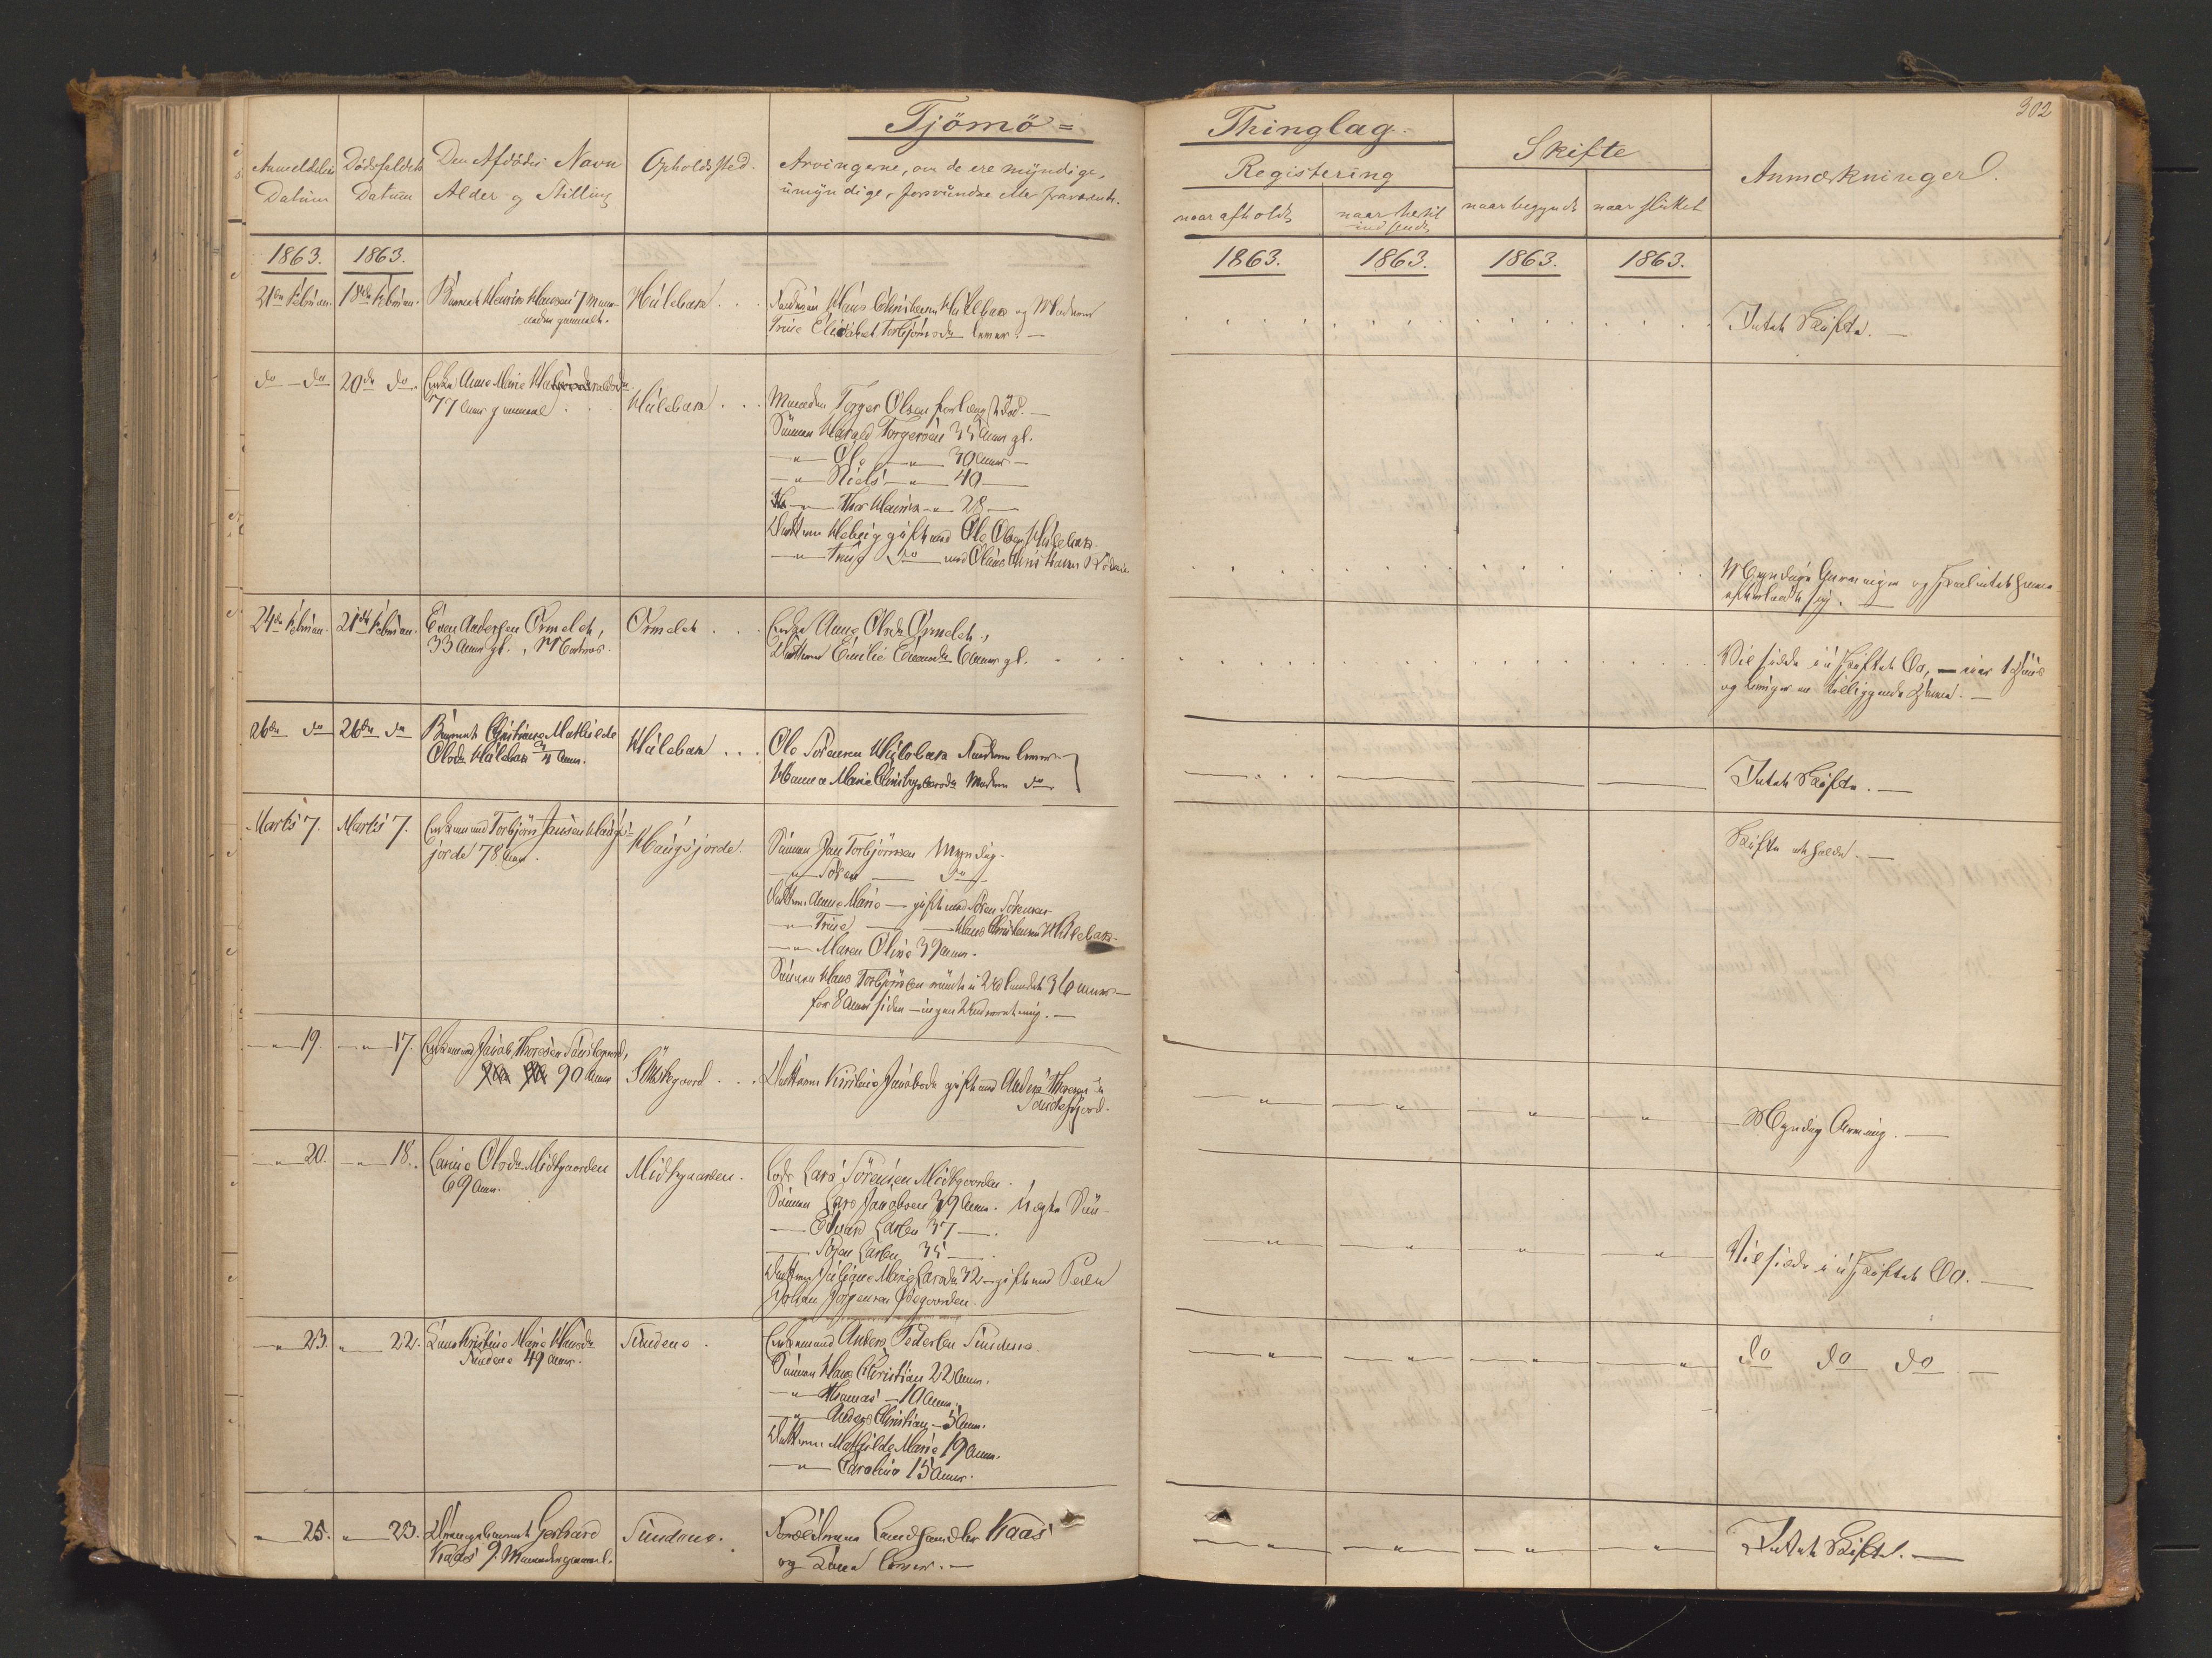 Tjömö =
Thinglag.
302
Anmeldelses Datum
Dødsfaldets Datum
Den Afdødes Navn
Alder og Stilling
Opholdssted.
Arvingerne, om de ere myndige,
umyndige, forsvundne eller fraværende.
Registering
naar afholdt
naar hertil
indsendt
Skifte
naar begyndt
naar sluttet
Anmærkninger.
1863. 1863.
1863. 1863. 1863. 1863.
21de Februar. 18de Februar.
Barnet Henrik Hansen 7 Maa-
neder gammelt.
Hulebak
Faderen Hans Christensen Hulebak og Moderen
Trine Elisabet Torbjörnsdr lever.
Intet Skifte.
do do 20de do.
Enke Anne Marie
77 Aar gammel
Hulebak
Manden Torger Olsen forlængst död.
Sönnen Harald Torgersen 35 Aar gl.
" Ole " 30 Aar
" Niels " 40
" Thor Henrik " 28
Datteren Helvig gift med Ole Olsen Hulebak.
" Trine do med Olaus Christensen
Myndige Arvinger og
24de Februar. 21de Februar.
Even Andersen Ormelet,
33 Aar gl., Matros.
Ormelet
Enke Anne Olsdr Ormelet,
Datteren Emilie Evensdr 6 Aar gl.
Vil sidde i uskiftet Bo, eier 1 Huus
og
26de do 26de do
Barnet Christiane Mathilde
Olsdr Hulebak 3/4 Aar.
Hulebak
Ole Sörensen Hulebak Faderen lever
Hanna Marie Moderen do
Intet Skifte.
Marts 7. Marts 7.
Enkemand Torbjörn Jansen Haugs-
jorde 78 Aar.
Haugsjorde.
Sönnen Jan Torbjörnsen Myndig.
" Sören do
Datteren Anne Marie gift med Sören Sörensen
" Trine Hans Christensen Hulebak.
" Maren Oline 39 Aar.
Sönnen Hans Torbjörnsen reiste i Udlandet 36 Aar
for 8 Aar siden ingen Underretning.
Skifte afholdes.
" 19. " 17.
Enkemand Jacob Thoresen
90 Aar
Datteren Kirstine Jacobsdr gift med Anders Thoresen i
Sandefjord.
Myndig Arving.
" 20. " 18.
Karine Olsdr Midtgaarden
69 Aar.
Midtgaarden.
Lars Sörensen Midtgaarden.
Sönnen Lars Jacobsen 39 Aar. Uægte Sön.
Edvard Larsen 37.
Sören Larsen 35.
Datteren Juliane Marie Larsdr 32 gift med Peder
Johan Jörgensen Ödegaarden.
Vil sidde i uskiftet Bo.
" 23. " 22.
Kone Kristine Marie Hansdr
Sundene 49 Aar.
Sundene.
Enkemand Anders Pedersen Sundene.
Sönnen Hans Christian 22 Aar.
" Thomas 10 Aar.
" Anders Christian 5 Aar.
Datteren Mathilde Marie 19 Aar.
" Caroline 15 Aar.
do do do
" 25. " 23.
Drengebarnet Gerhard
Kaas 9. Maaneder gammel.
Sundene.
Forældrene Landhandler Kaas
og Kone lever.
Intet Skifte.